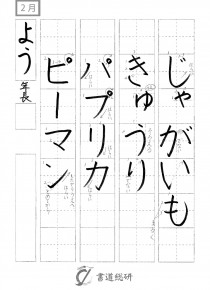 2月
じゃがいも
きゅうり
パプリカ
ピーマン
よう
年長
書道総研